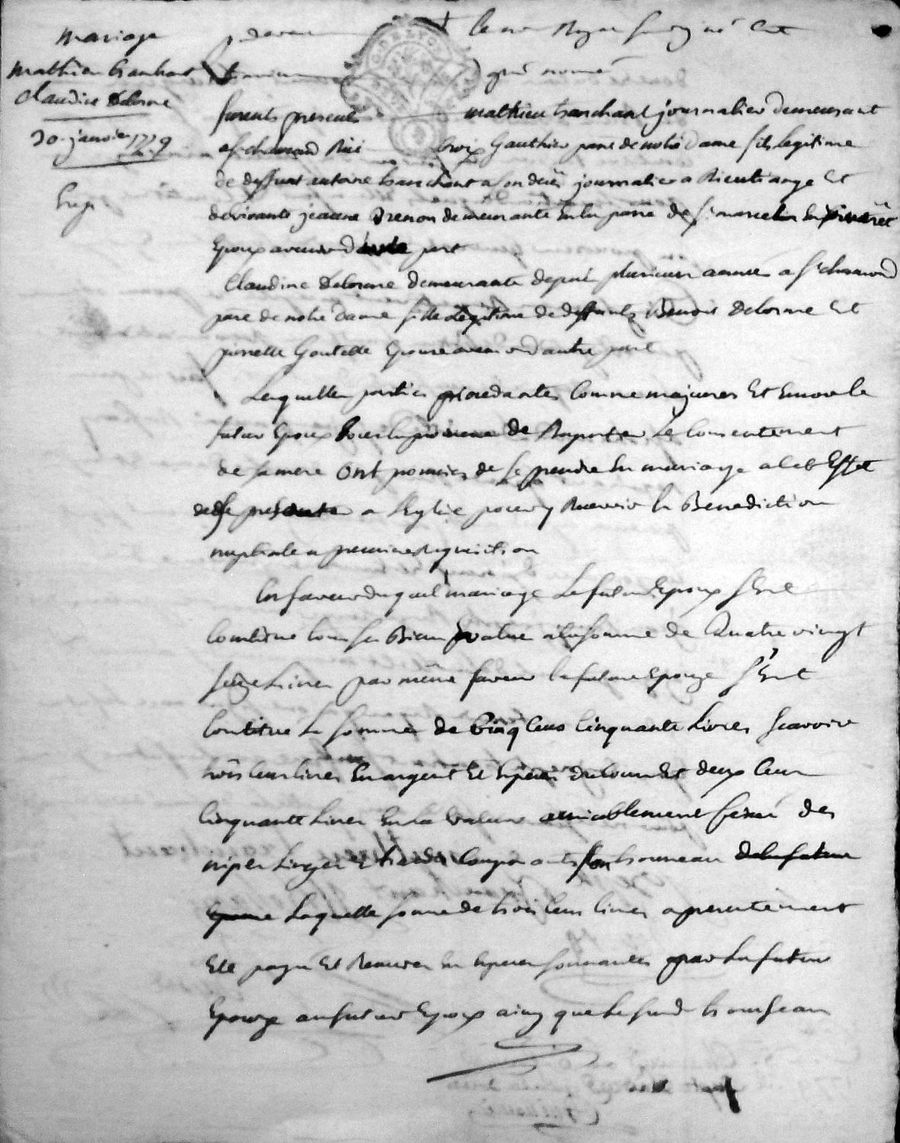 Mariage
Mathieu tranchant
Claudine Delorme
30 janvier 1779
pardevant le no Royal soussigné Et
temoins nommé
furent presents mathieu tranchant journalier demeurant
a st chamond Croix Gauthier parre de notre Dame fils legitime
de deffunt antoine tranchant a son deces journalier a Et
de vivante jeanne demeurante en la parre de st marcelin
Epoux avenir d'une part
Claudine Delorme demeurante depuis plusieurs années a st chamond
parre de notre dame fille legitime de deffunts Benoit Delorme Et
pierrette Goutelle Epouse avenir d'autre part
Lesquelles parties procedantes comme majeures Et encore le
futur Epoux de Raporter le consentement
de sa mere ont promis de se prendre en mariage a cet Effet
de se presenter a l'Eglise pour y Recevoir la Benediction
nuptiale a premiere Requisition
En faveur duquel mariage Le futur Epoux s'Est
constitué tous ses Biens valeur a la somme de Quatre vingt
seize Livres par même faveur la future Epouze s'Est
constitué La somme de Cinq Cens Cinquante Livres scavoire
trois cens livres En argent Et Especes du cour Et deux Cens
Cinquante Livres En la valeur amiablement fixée des
nipes Linges Et hardes composants son trousseau de la future
Epouse Laquelle somme de trois Cens livres a presentement
Eté payée Et Remise en Especes sonnantes par La future
Epouze au futur Epoux ainsy que Le susd trousseau